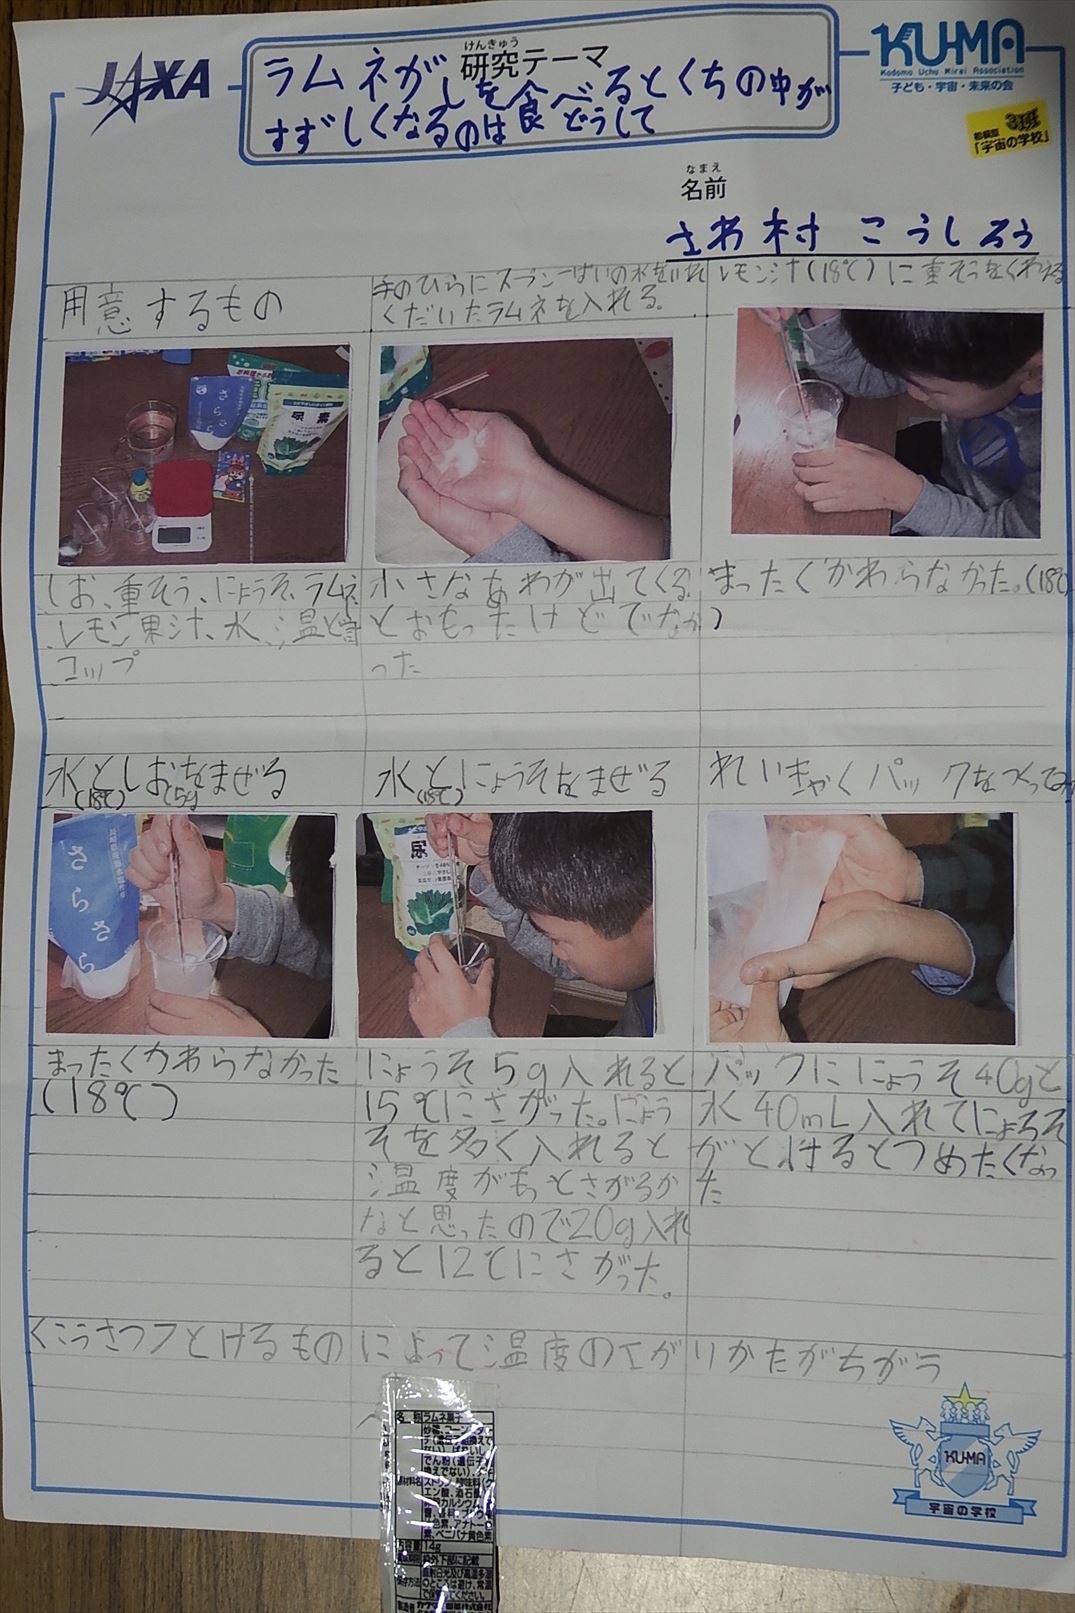 JAXA
けんきゅう
研究テーマ
ラムネがしを食べるとくちの中が
すずしくなるのはどうして
KU-MA
Kodomo Uchu Mirai Association
子ども・宇宙・未来の会
相模原 3班
「宇宙の学校」
なまえ
名前
さわ村 こうしろう
用意するもの
さらさ
尿素
しお、重そう、にょうそ、ラムネ
、レモン果汁、水、温ど計
コップ
手のひらにスプーン一ぱいの水をいれ
くだいたラムネを入れる。
小さなあわが出てくる
とおもったけどでなか
った
レモン汁(18℃)に重そうをくわえる
まったくかわらなかった。(18℃
)
水としおをまぜる
(18℃) 5g
さらさら
まったくかわらなかった
(18℃)
水とにょうそをまぜる
(18℃)
尿
にょうそ5g入れると
15℃にさがった。にょう
そを多く入れると
温度がもっとさがるか
なと思ったので20g入れ
ると12℃にさがった。
れいきゃくパックをつくってみ
パックににょうそ40gと
水40mL入れてにょうそ
がとけるとつめたくなっ
た
くこうさつフとけるものによって温度の下がりかたがちがう
名称 ラムネ菓子
内容量 14g
枠外下部に記載
保存方法 直射日光及び高温多湿
のところは避け、常温
で保存してください。
KU-MA
宇宙の学校